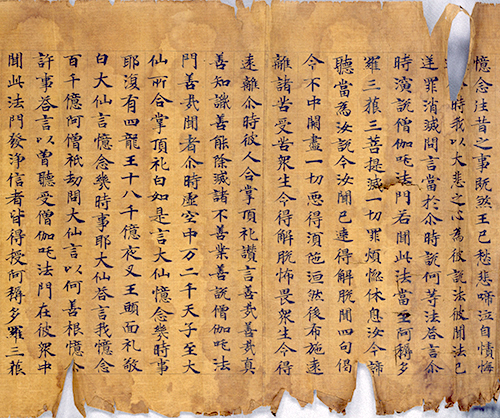 憶念往昔之事既然王已愁悲啼泣自憤悔
時我以大悲之心為彼說法彼聞法已
逆罪消滅問言當於尒時說何等法荅言尒
時演說僧伽吒法門若聞此法當至阿耨多
羅三藐三菩提滅一切罪煩惱休息汝今諦
聽當為汝說令汝聞已速得解脫聞四句偈
令不中闕盡一切惡得須陁洹然後布施遠
離諸苦受苦衆生令得解脫怖畏衆生令得
遠離尒時彼人合掌頂礼讚言善哉善哉真
善知識善能除滅諸不善業善說僧伽吒法
門善哉聞者尒時虛空中万二千天子至大
仙所合掌頂礼白如是言大仙憶念幾時事
耶復有四龍王十八千億夜叉王頭面礼敬
白大仙言憶念幾時事耶大仙荅言我憶念
百千億阿僧祇劫問大仙言以何善根憶念
許事荅言以曽聽受僧伽吒法門在彼衆中
聞此法門發淨信者皆得授阿耨多羅三藐